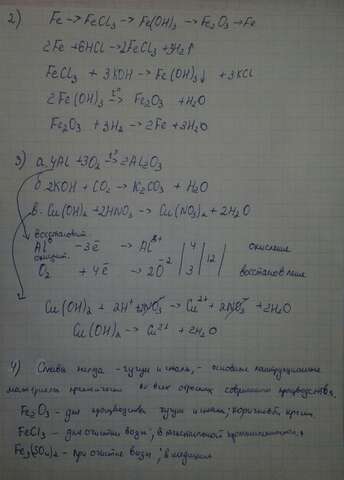 2) Fe → FeCl₃ → Fe(OH)₃ → Fe₂O₃ → Fe
2Fe + 6HCl → 2FeCl₃ + 3H₂↑
FeCl₃ + 3KOH → Fe(OH)₃↓ + 3KCl
2Fe(OH)₃ →t° Fe₂O₃ + H₂O
Fe₂O₃ + 3H₂ → 2Fe + 3H₂O
3) а. 4Al + 3O₂ →t° 2Al₂O₃
б. 2KOH + CO₂ → K₂CO₃ + H₂O
в. Cu(OH)₂ + 2HNO₃ → Cu(NO₃)₂ + 2H₂O
восстановит.
Al⁰ - 3ē → Al³⁺ | 4 | окисление
окислит.
O₂ + 4ē → 2O⁻² | 3 | 12 | восстановление
Cu(OH)₂ + 2H⁺ + 2NO₃⁻ → Cu²⁺ + 2NO₃⁻ + 2H₂O
Cu(OH)₂ → Cu²⁺ + 2H₂O
4) Сплавы железа - чугун и сталь, - основные конструкционные
материалы применяются во всех отраслях современного производства.
Fe₂O₃ - для производства чугуна и стали, коричневой краски
FeCl₃ - для очистки воды, в текстильной промышленности
Fe₃(SO₄)₂ - при очистке воды, в медицине